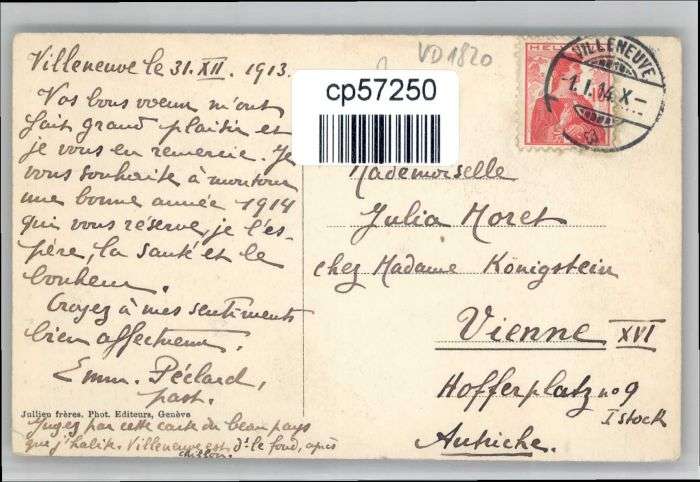 Villeneuve le 31. XII. 1913.
Vos bons voeux m'ont
fait grand plaisir et
je vous en remercie. Je
vous souhaite à mon tour
une bonne année 1914
qui vous réserve, je l'es-
père, la santé et le
bonheur.
Croyez à mes sentiments
bien affectueux,
Emm. Péclard,
past.
Jullien frères. Phot. Editeurs, Genève
Jugez par cette carte du beau pays
que j'habite. Villeneuve est ds le fond, après
Chillon.
VD1820
cp57250
HELVETIA
VILLENEUVE
-1. I. 14. X-
Mademoiselle
Julia Moret
chez Madame Königstein
Vienne XVI
Hofferplatz no 9
I Stock
Autriche.